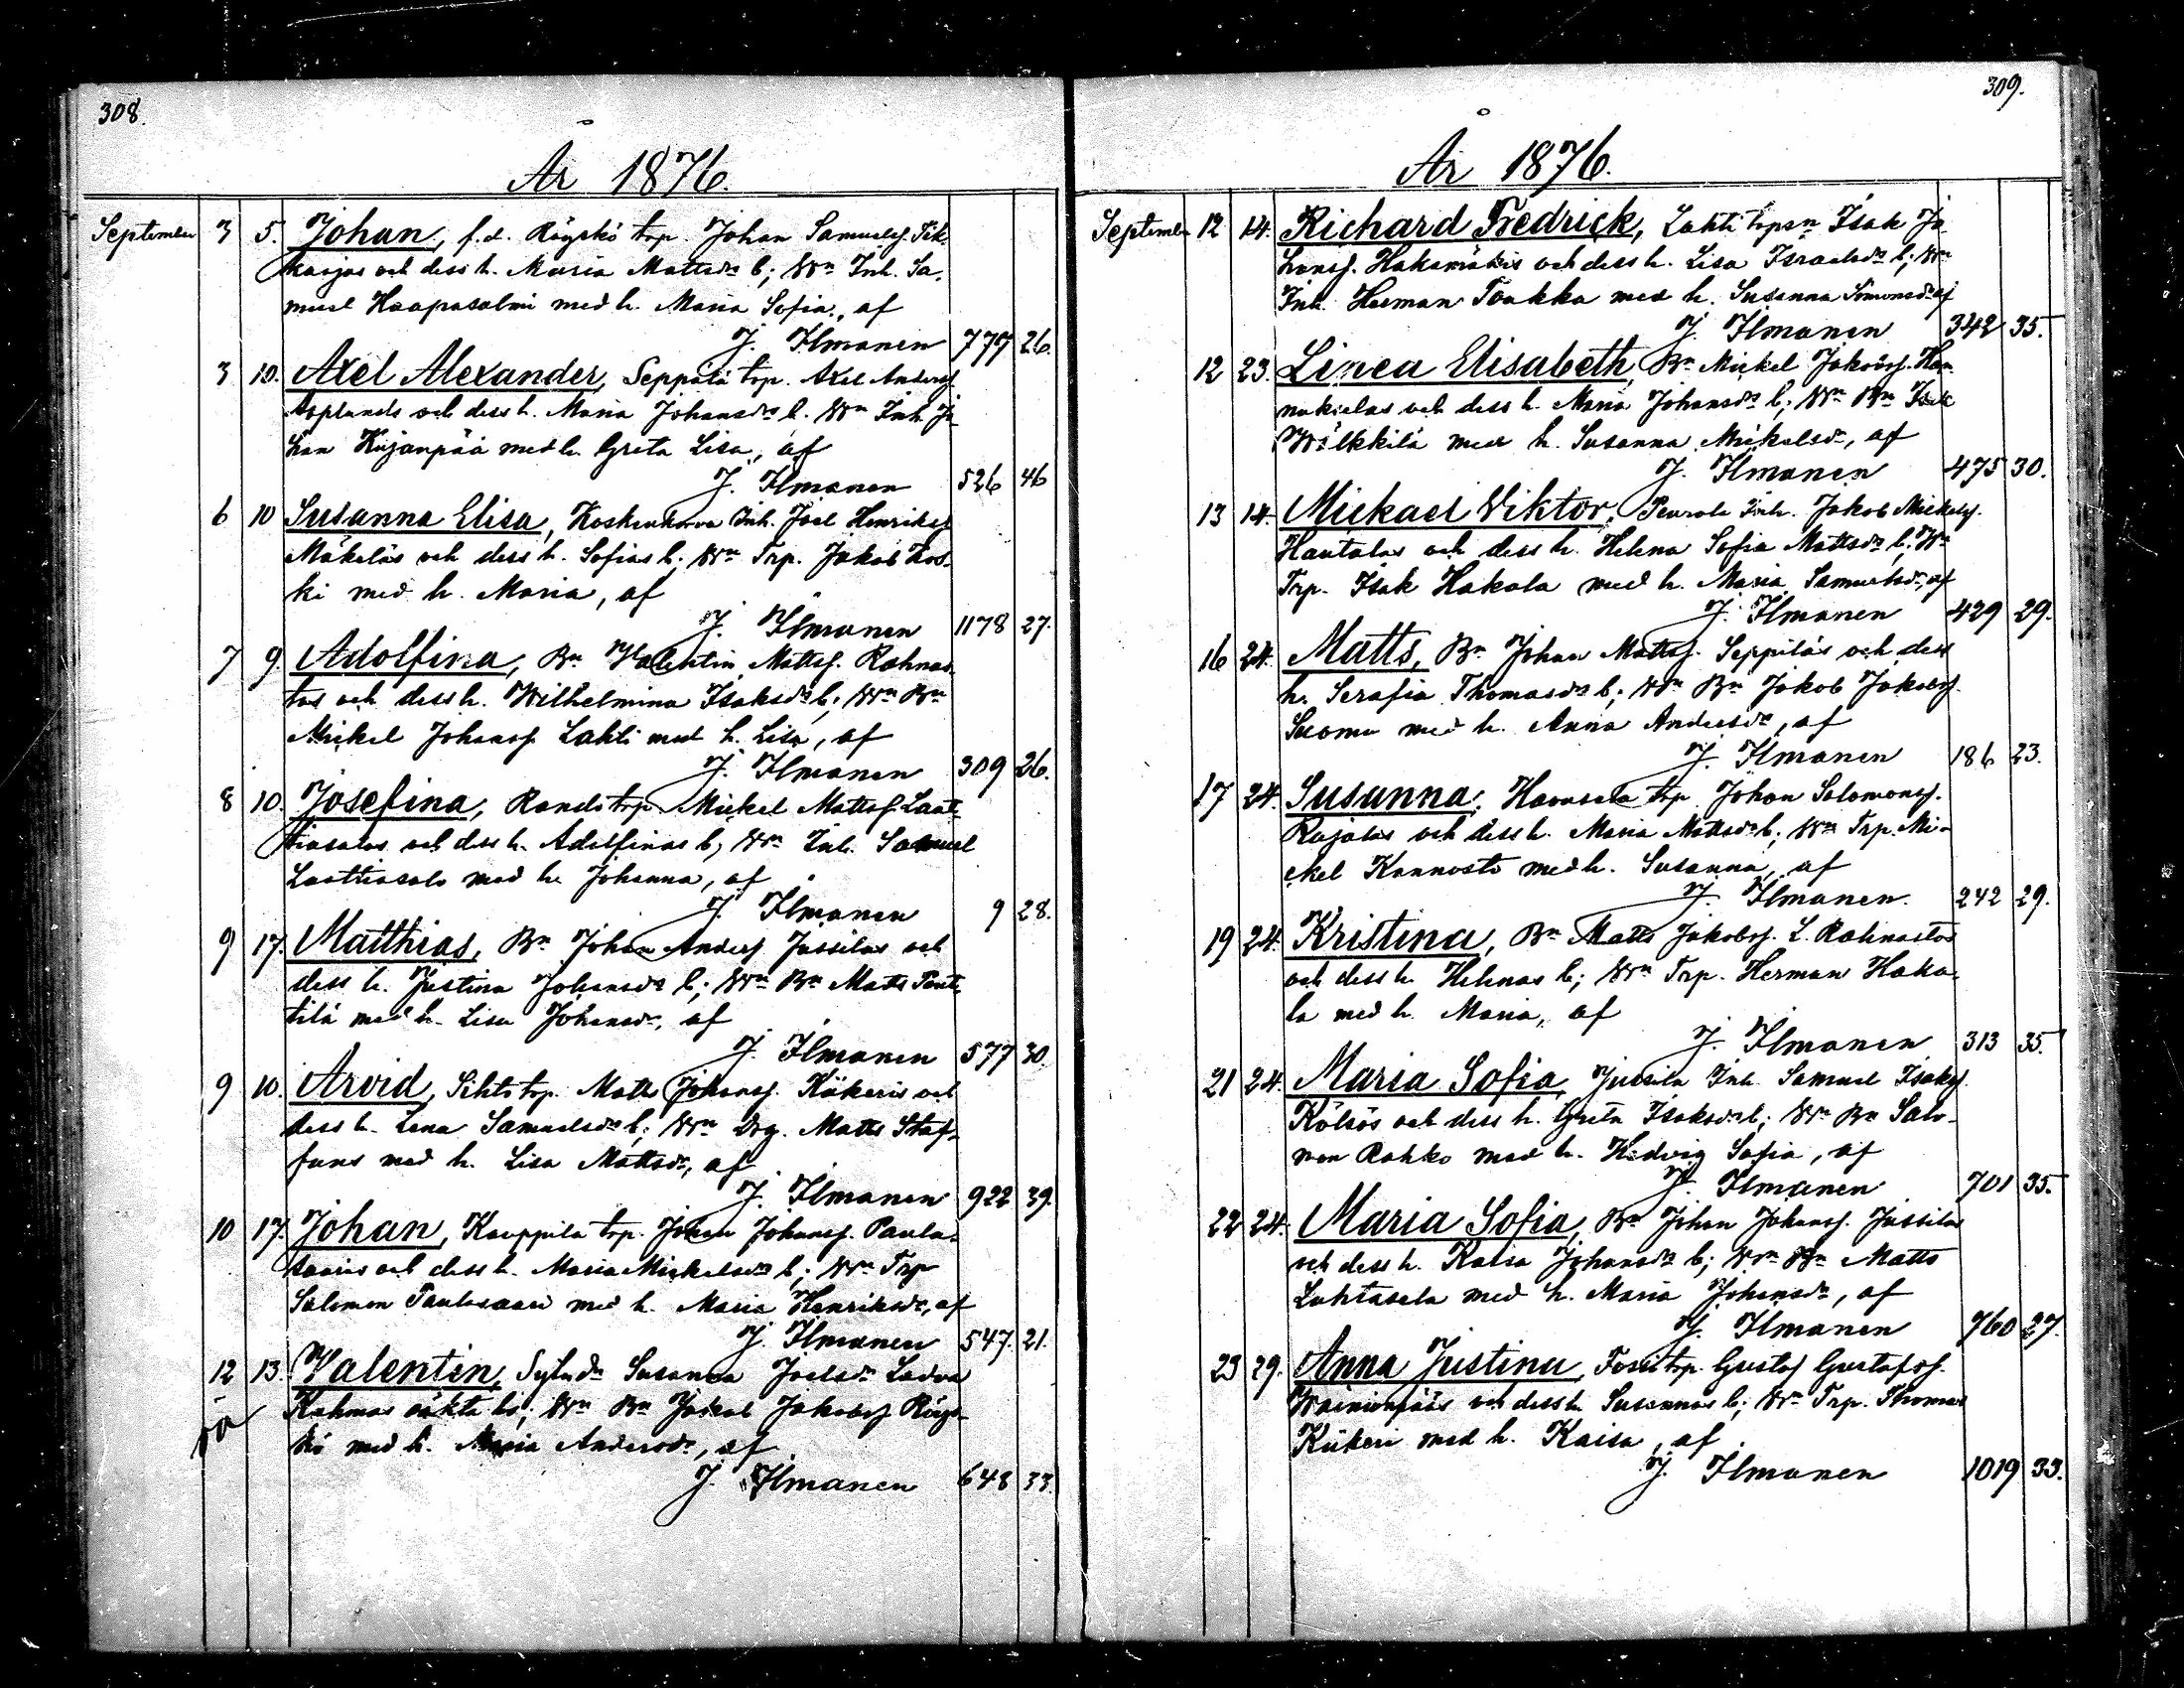 308.
År 1876.
September 3 5. Johan, f.d. Rögskö trp. Johan Samuelsf. Pik-
karjas och dess h. Maria Mattsdr b; Wn Inh. Sa-
muel Haapasalmi med h. Maria Sofia, af
J. Ilmonen 777 26.
3 10. Axel Alexander, Seppälä trp. Axel Andersf.
Asplunds och dess h. Maria Johansdr b. Wn Inh. Jo-
han Kujanpää med h. Greta Lisa, af
J. Ilmonen 526 46
6 10 Susanna Elisa, Koskenkorva Inh. Joel Henriksf.
Mäkeläs och dess h. Sofias b; Wn Trp. Jakob Kos-
ki med h. Maria, af
J. Ilmonen 1178 27.
7 9. Adolfina, Bn Valentin Mattsf. Rahnas-
tos och dess h. Wilhelmina Isaksdr b; Wn Bn
Mickel Johansf. Lahti med h. Lisa, af
J. Ilmonen 309 26.
8 10. Josefina, Rands trp. Mickel Mattsf. Laat-
tiasalos och dess h. Adolfinas b; Wn Inh. Samuel
Laattiasalo med h. Johanna, af
J. Ilmonen 9 28.
9 17. Matthias, Bn Johan Andersf. Jussilas och
dess h. Justina Johansdr b; Wn Bn Matts Pent-
tilä med h. Lisa Johansdr, af
J. Ilmonen 577 30.
9 10. Arvid, Sihto trp. Matts Johansf. Kökeris och
dess h. Lena Samuelsdr b; Wn Drg. Matts Staf-
fans med h. Lisa Mattsdr, af
J. Ilmonen 922 39.
10 17. Johan, Kauppila trp. Johan Johansf. Paula-
saaris och dess h. Maria Mickelsdr b; Wn Trp
Salomon Paulasaari med h. Maria Henriksdr, af
J. Ilmonen 547. 21.
12 13. Valentin, Sytndr Susanna Joelsdr Ladva
Kahmas oäkta bs; Wn Bn Jakob Jakobsf. Rögs-
kö med h. Maria Andersdr, af
oä
J. Ilmonen 648 33.
309.
År 1876.
September 12 14. Richard Fredrick, Lahti trpsn Isak Jo-
hansf. Hakamäkis och dess h. Lisa Israelsdr b; Wn
Inh. Herman Toukka med h. Susanna Simonsdr af
J. Ilmonen 342 35.
12 23. Linea Elisabeth, Bn Mickel Jakobsf. Han-
nukselas och dess h. Maria Johansdr b; Wn Bn Isak
Wälkkilä med h. Susanna Mickelsdr, af
J. Ilmonen 475 30.
13 14. Mickael Viktor, Peurala Inh. Jakob Mickelsf.
Hautalas och dess h. Helena Sofia Mattsdr b; Wn
Trp. Isak Hakala med h. Maria Samuelsdr, af
J. Ilmonen 429 29.
16 24. Matts, Bn Johan Mattsf. Seppiläs och dess
h. Serafia Thomasdr b; Wn Bn Jakob Jakobsf.
Suomu med h. Anna Andersdr, af
J. Ilmonen 186 23.
17 24. Susanna, Havusela trp. Johan Salomonsf.
Rajalas och dess h. Maria Mattsdr b; Wn Trp. Mi-
ckel Kannosto med h. Susanna, af
J. Ilmonen. 242 29.
19 24. Kristina, Bn Matts Jakobsf. L. Rahnastos
och dess h. Helenas b; Wn Trp. Herman Haka-
la med h. Maria, af
J. Ilmonen 313 35.
21 24. Maria Sofia, Jussila Inh. Samuel Isaksf.
Kölsös och dess h. Greta Isaksdr b; Wn Bn Salo-
mon Rahko med h. Hedvig Sofia, af
J. Ilmonen 701 35.
22 24. Maria Sofia, Bn Johan Johansf. Jussilas
och dess h. Kaisa Johansdr b; Wn Bn Matts
Luhtasela med h. Maria Johansdr, af
J. Ilmonen 760 27.
23 29. Anna Justina, Fossi trp. Gustaf Gustafsf.
Wainionpääs och dess h. Susannas b; Wn Trp. Thomas
Kükeri med h. Kaisa, af
J. Ilmonen 1019 33.